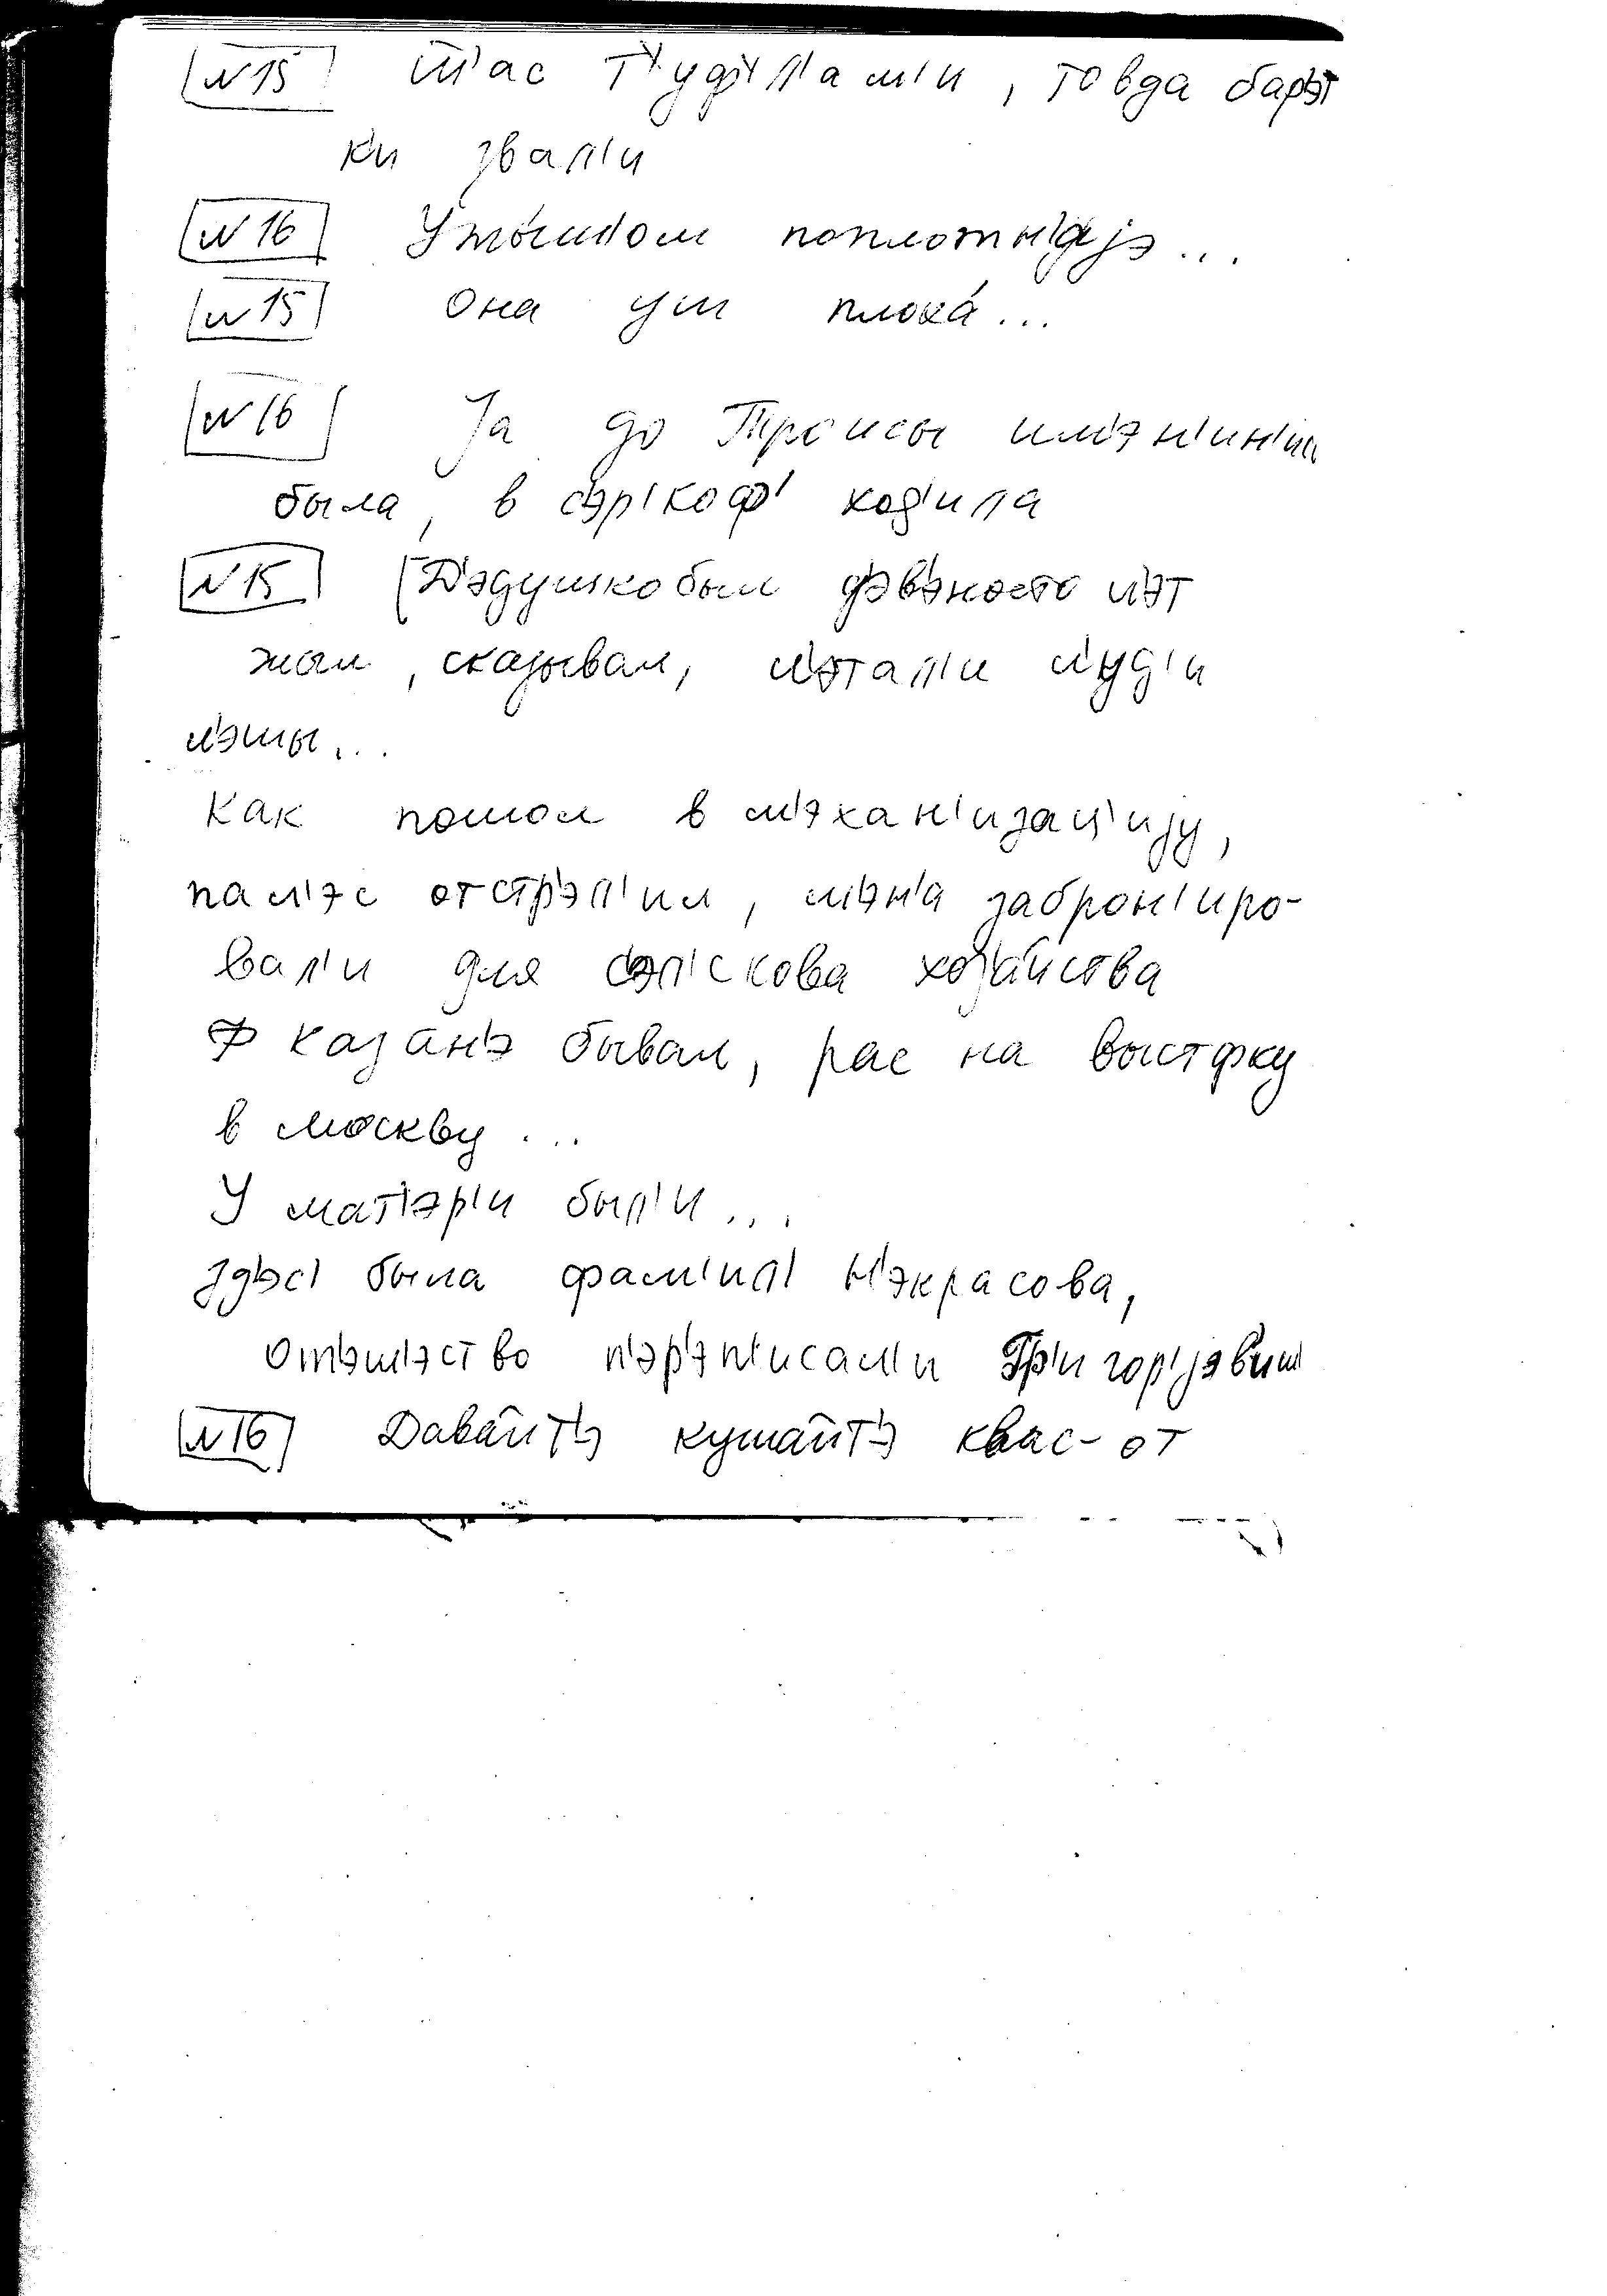 №15 ш'ас т'уфл'ам'и, товда бар'эт
к'и звал'и
№16 Ужыш'ом поплотн'ајэ...
№15 Она уш плоха́...
№16 Jа до Троисы им'эн'ин'иш
была, в с'эр'коф' ход'ила
№15 Д'эдушко был д'эв'эносто л'эт
жыл, сказывал, м'этал'и л'уд'и
м'эшы...
Как пошол в м'эхан'изац'иjу,
пал'эс отстр'эл'ил, м'эн'а заброн'иро-
вал'и для с'эл'скова хоз'айства
Ф казан'э бывал, рас на выстфку
в Москву...
У мат'эр'и был'и...
зд'эс' была фам'ил' Н'экрасова,
от'эш'эство п'эр'эп'исал'и Гр'игор'jэвиш'
№16 Давайт'э кушайт'э квас-от